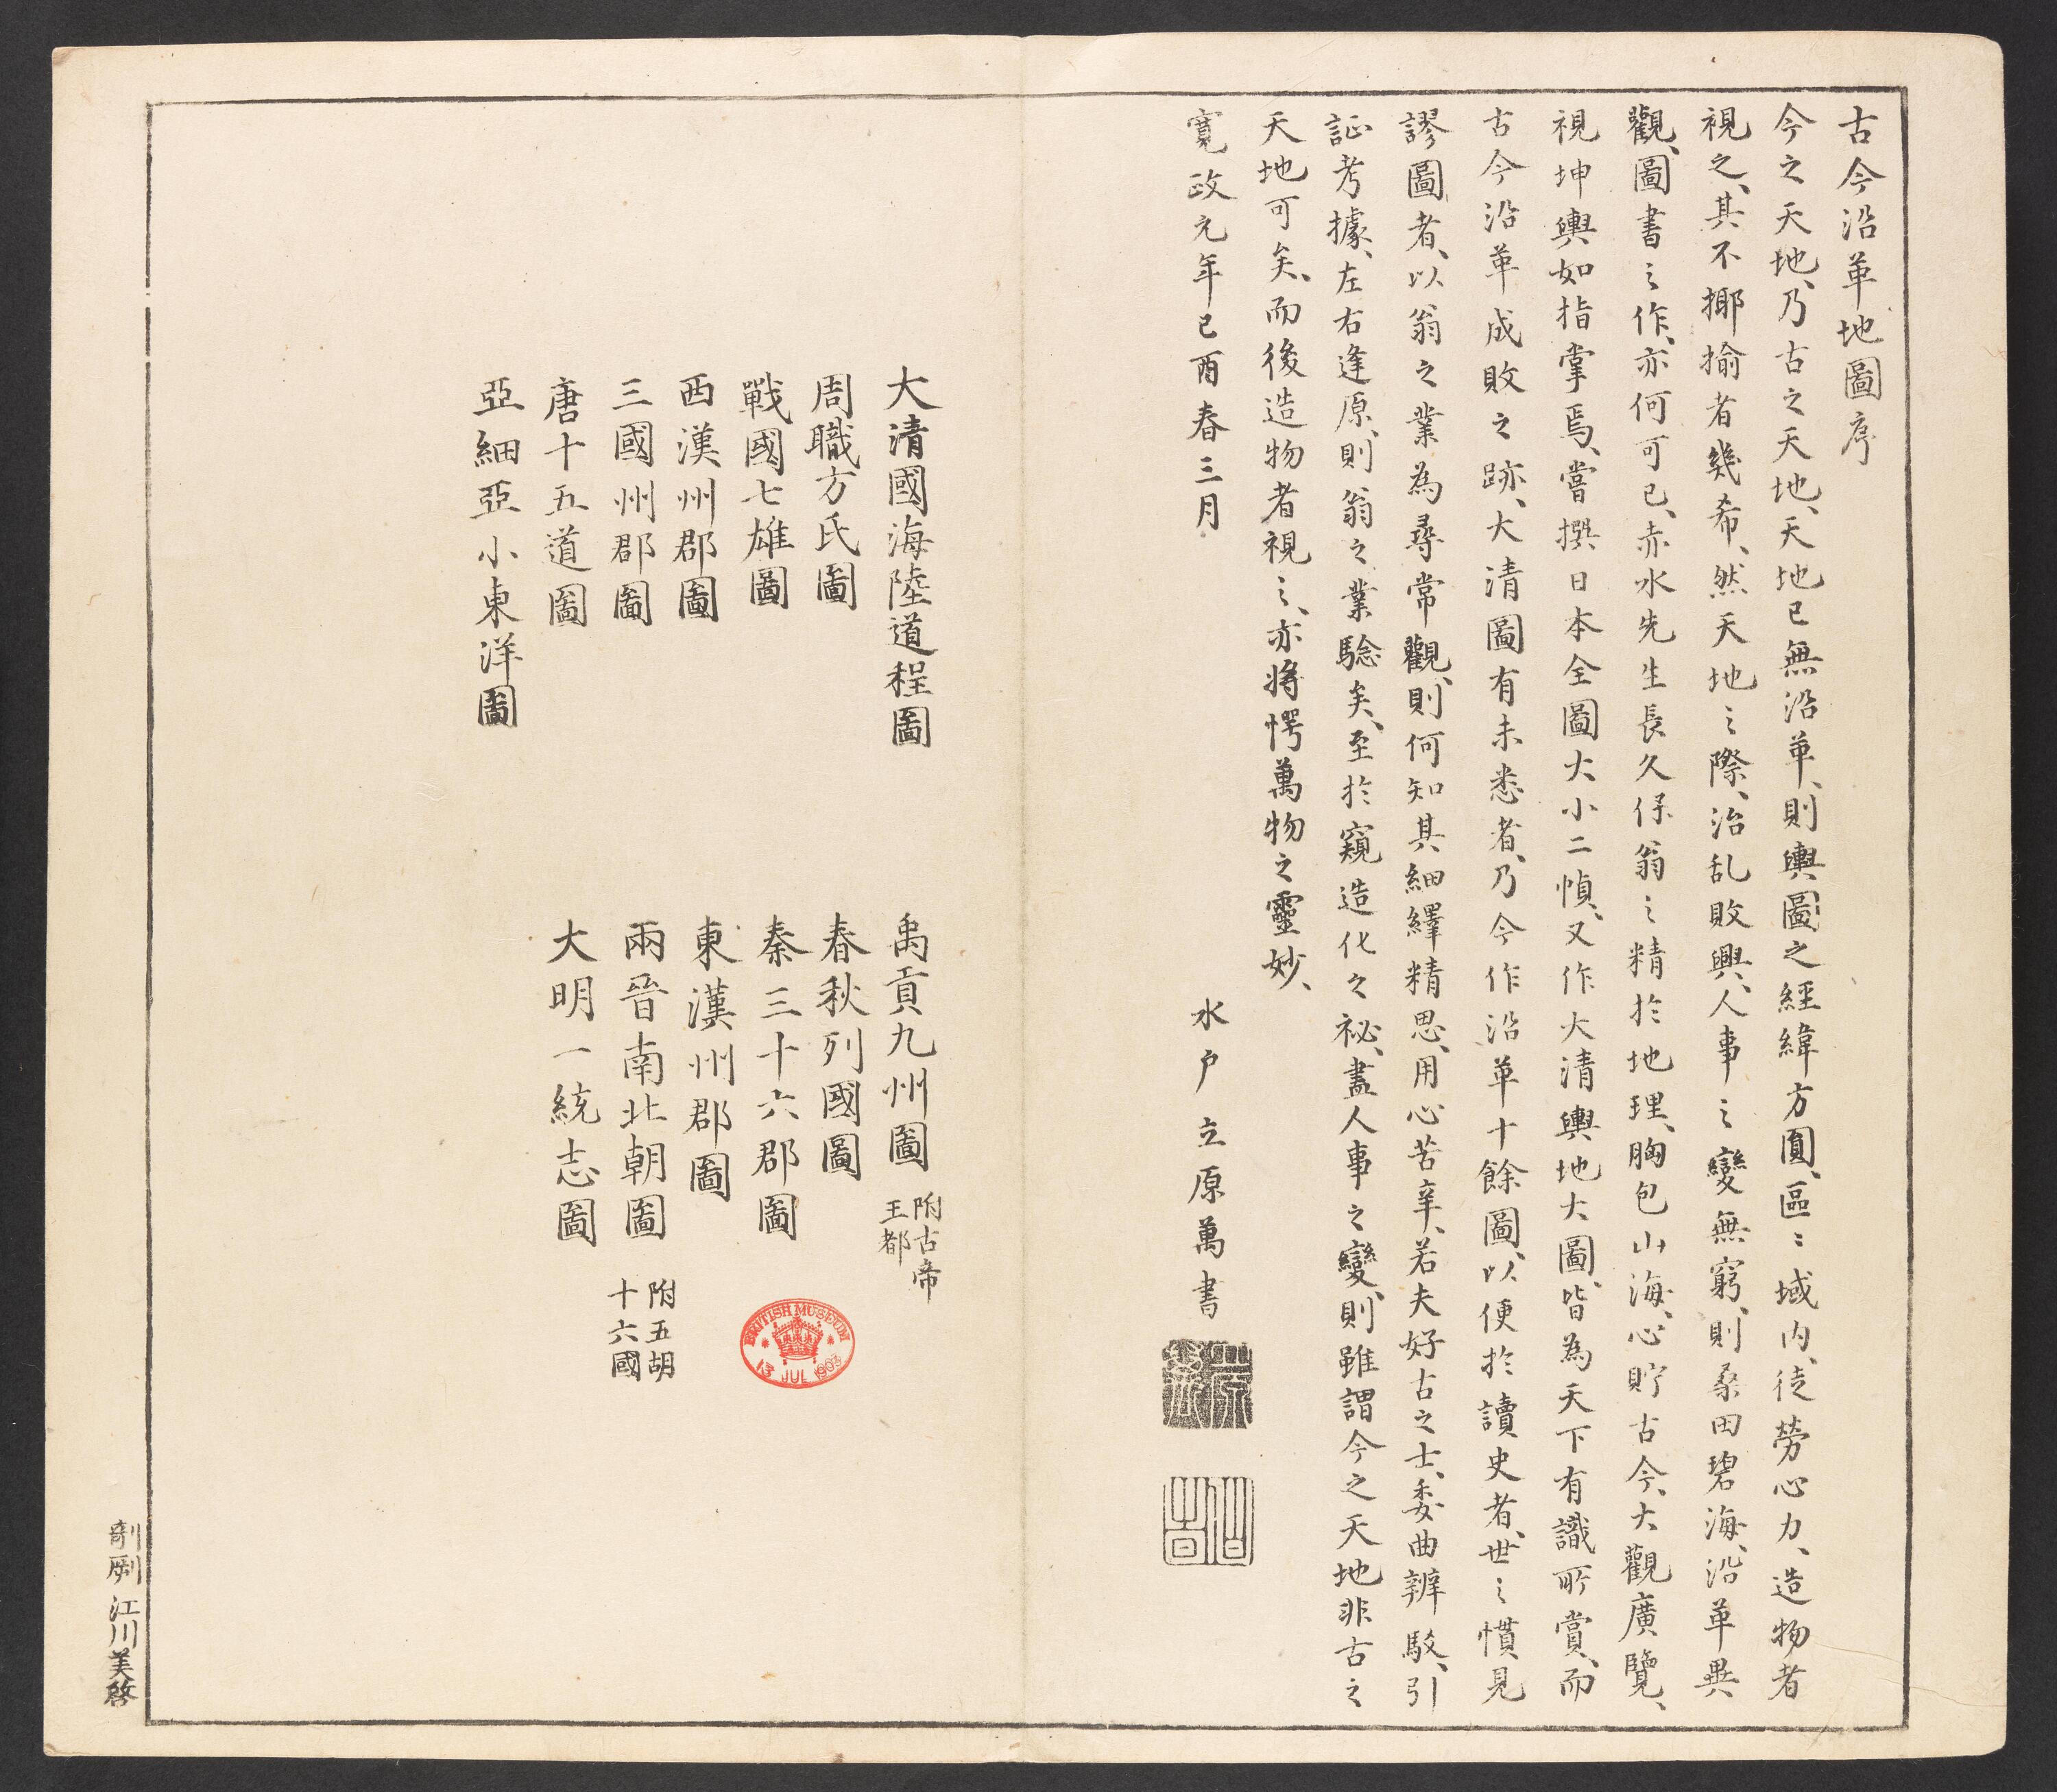 古今沿革地圖序
今之天地、乃古之天地、天地已無沿革、則輿圖之經緯方圓、區〻域内、徒勞心力、造物者
視之、其不揶揄者幾希、然天地之際、治乱敗興、人事之變無窮、則桑田碧海、沿革異
觀、圖書之作、亦何可已、赤水先生長久保翁之精於地理、胸包山海、心貯古今、大觀廣覽、
視坤輿如指掌焉、嘗撰日本全圖大小二幀、又作大清輿地大圖、皆為天下有識所賞、而
古今沿革成敗之跡、大清圖有未悉者、乃今作沿革十餘圖、以便於讀史者、世之慣見
謬圖者、以翁之業為尋常觀、則何知其細繹精思、用心苦辛、若夫好古之士、委曲辨駁、引
証考據、左右逢原、則翁之業驗矣、至於窺造化之祕、盡人事之變、則雖謂今之天地非古之
天地可矣、而後造物者視之、亦将愕萬物之靈妙、
寛政元年已酉春三月
水戸立原萬書
大清國海陸道程圖
禹貢九州圖 附古帝王都
周職方氏圖
春秋列國圖
戰國七雄圖
秦三十六郡圖
西漢州郡圖
東漢州郡圖
三國州郡圖
兩晉南北朝圖 附五胡十六國
唐十五道圖
大明一統志圖
亞細亞小東洋圖
BRITISH MUSEUM
13 JUL 1903
剞劂 江川美啓